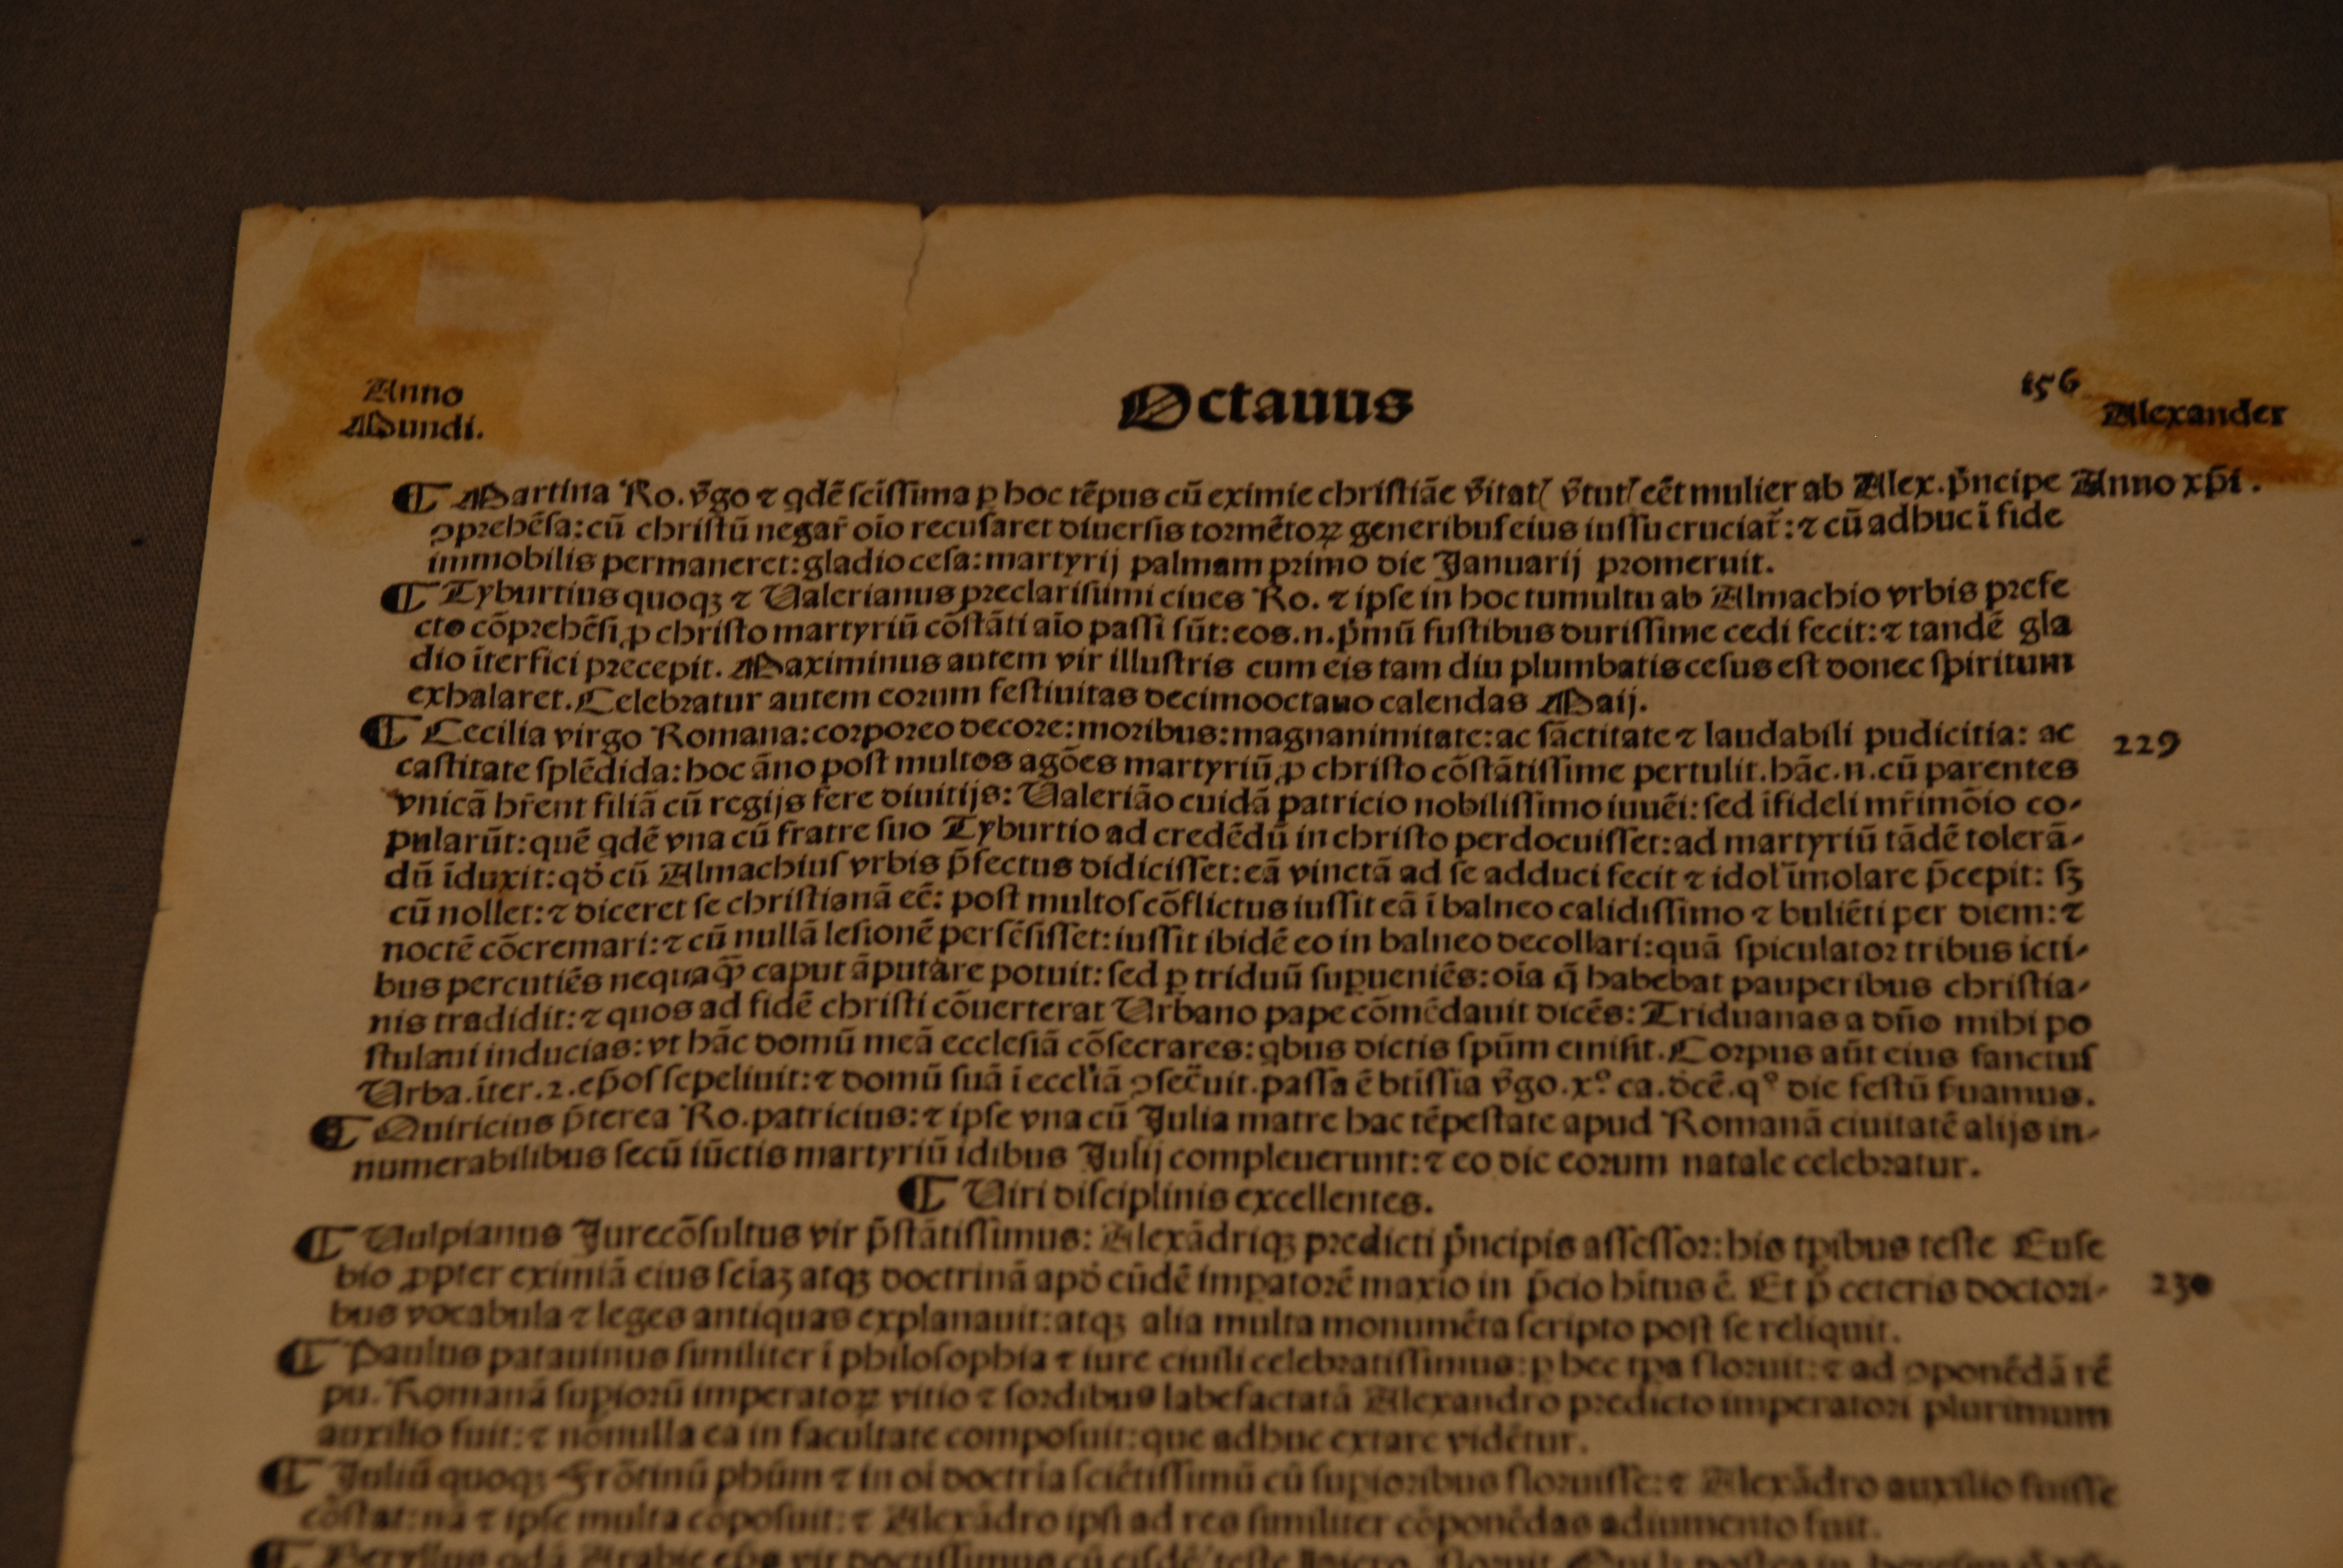 Anno
Mundi.
Octauus
156
Alexander
Anno xp̄i.
¶ Martina Ro. v̄go ⁊ qdē scissima ꝑ hoc tēpus cū eximie christiāe v̄itatꝭ v̄tutꝭ eēt mulier ab Alex. p̄ncipe
ꝯprehēsa: cū christū negar̄ oīo recusaret diuersis tormētoꝝ generibus eius iussu cruciat̄: ⁊ cū adhuc ī fide
immobilis permaneret: gladio cesa: martyrij palmam primo die Januarij promeruit.
¶ Tyburtius quoqꝫ ⁊ Ualerianus preclarissimi ciues Ro. ⁊ ipse in hoc tumultu ab Almachio vrbis prefe
cto cōprehēsi, ꝓ christo martyriū cōstāti aīo passi sūt: eos .n. p̄mū fustibus durissime cedi fecit: ⁊ tandē gla
dio īterfici precepit. Maximinus autem vir illustris cum eis tam diu plumbatis cesus est donec spiritum
exhalaret. Celebratur autem eorum festiuitas decimooctauo calendas Maij.
¶ Cecilia virgo Romana: corporeo decore: moribus: magnanimitate: ac sāctitate ⁊ laudabili pudicitia: ac
229
castitate splēdida: hoc āno post multos agōes martyriū ꝓ christo cōstātissime pertulit. hāc .n. cū parentes
vnicā hr̄ent filiā cū regijs fere diuitijs: Ualeriāo cuidā patricio nobilissimo iuuēi: sed īfideli mr̄imōio co-
pularūt: quē qdē vna cū fratre suo Tyburtio ad credēdū in christo perdocuisset: ad martyriū tādē tolerā-
dū īduxit: qđ cū Almachius vrbis p̄fectus didicisset: eā vinctā ad se adduci fecit ⁊ idol' īmolare p̄cepit: sꝫ
cū nollet: ⁊ diceret se christianā eē: post multos cōflictus iussit eā ī balneo calidissimo ⁊ buliēti per diem: ⁊
noctē cōcremari: ⁊ cū nullā lesionē persēsisset: iussit ibidē eo in balneo decollari: quā spiculator tribus icti-
bus percutiēs nequaꝙ̄ caput āputare potuit: sed ꝑ triduū suꝑueniēs: oīa q̄ habebat pauperibus christia-
nis tradidit: ⁊ quos ad fidē christi cōuerterat Urbano pape cōmēdauit dicēs: Triduanas a dño mihi po
stulaui inducias: vt hāc domū meā ecclesiā cōsecrares: qbus dictis spūm emisit. Corpus aūt eius sanctus
Urba. īter .2. ep̄os sepeliuit: ⁊ domū suā ī eccl'iā ꝯsec̄uit. passa ē btissia v̄go .x° ca. đcē. q° die festū s̄uamus.
¶ Quiricius p̄terea Ro. patricius: ⁊ ipse vna cū Julia matre hac tēpestate apud Romanā ciuitatē alijs in-
numerabilibus secū iūctis martyriū idibus Julij compleuerunt: ⁊ eo die eorum natale celebratur.
¶ Uiri disciplinis excellentes.
¶ Uulpianus Jurecōsultus vir p̄stātissimus: Alexādriqꝫ predicti p̄ncipis assessor: his tꝑibus teste Euse
bio ꝓpter eximiā eius sciāꝫ atqꝫ doctrinā apđ eūdē imꝑatorē maxīo in p̄cio hītus ē. Et p̄ ceteris doctori-
230
bus vocabula ⁊ leges antiquas explanauit: atqꝫ alia multa monumēta scripto post se reliquit.
¶ Paulus patauinus similiter ī philosophia ⁊ iure ciuili celebratissimus: ꝑ hec tꝑa floruit: ⁊ ad ꝯponēdā rē
pu. Romanā suꝑiorū imperatoꝝ vitio ⁊ sordibus labefactatā Alexandro predicto imperatori plurimum
auxilio fuit: ⁊ nōnulla ea in facultate composuit: que adhuc extare vidētur.
¶ Juliū quoqꝫ Frōtinū phūm ⁊ in oī doctrīa sciētissimū cū suꝑioribus floruisse: ⁊ Alexādro auxilio fuisse
cōstat: nā ⁊ ipse multa cōposuit: ⁊ Alexādro ipsi ad res similiter cōponēdas adiumento fuit.
¶ Beryllus qdā Arabie ep̄s vir doctissimus cū eisdē teste